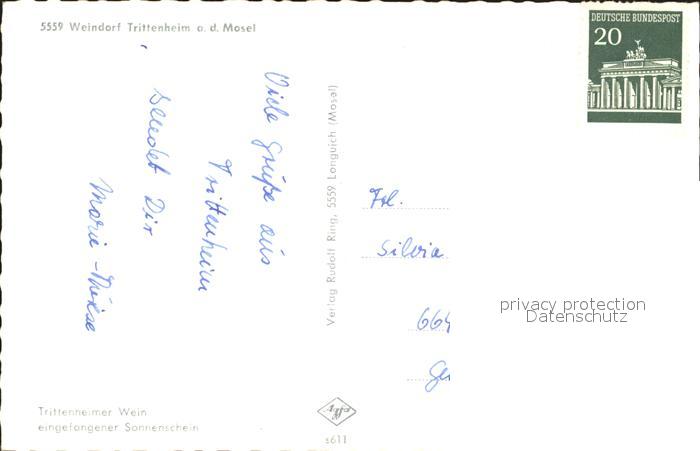 5559 Weindorf Trittenheim a. d. Mosel
DEUTSCHE BUNDESPOST
20
Viele Grüße aus
Trittenheim
sendet Dir
Marie-
Verlag Rudolf Ring, 5559 Longuich (Mosel)
Frl.
Silvia
664
privacy protection
Datenschutz
Trittenheimer Wein
eingefangener Sonnenschein
Agfa
s611